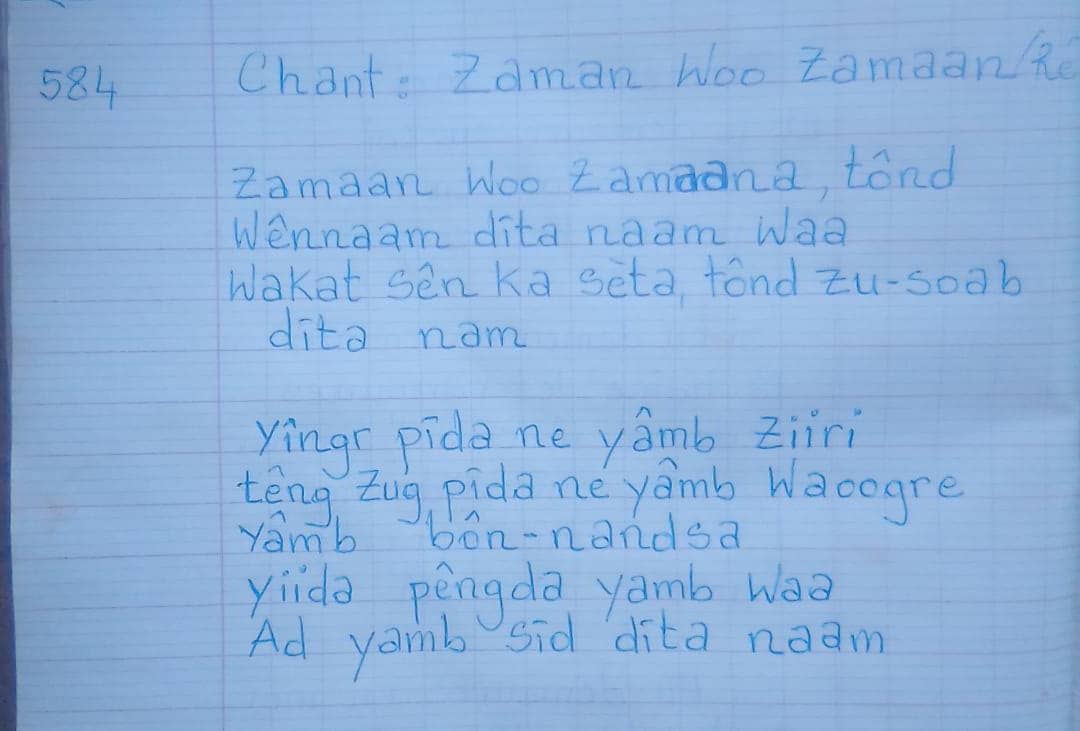 584 Chant: Zaman Woo Zamaan/Re
Zamaan Woo Zamaana, tônd
Wênnaam dîta naam Waa
Wakat sên ka sèta, tônd zu-soab
dīta nam
Yîngr pīda ne yâmb Ziiri
têng Zug, pîda ne yâmb Waoogre
Yâmb bôn-nandsa
yiida pêngda yamb Waa
Ad yamb sīd dîta naam